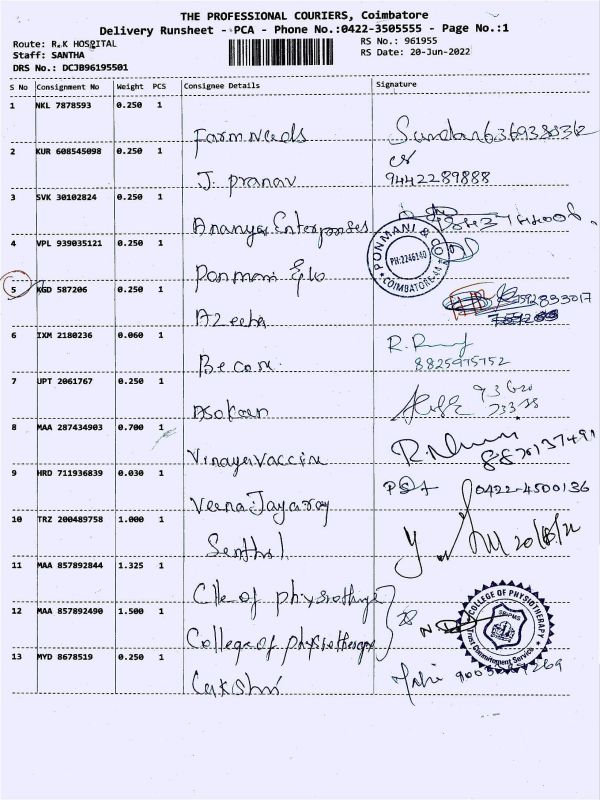 THE PROFESSIONAL COURIERS, Coimbatore
Delivery Runsheet - PCA - Phone No.:0422-3505555 - Page No.:1
Route: R.K HOSPITAL
RS No.: 961955
Staff: SANTHA
RS Date: 20-Jun-2022
DRS No.: DCJB96195501
S No Consignment No Weight PCS Consignee Details Signature
1 NKL 7878593 0.250 1
Farm Needs
2 KUR 608545098 0.250 1
J. Pranav 9442289888
3 SVK 30102824 0.250 1
Ananya Enterprises
4 VPL 939035121 0.250 1
Ponmani & Co
PONMANI & CO
PH:2246140
COIMBATORE-44
5 KGD 587206 0.250 1
Azeeba
6 IXM 2180236 0.060 1
Becon 8825975752
7 UPT 2061767 0.250 1
Asokan
8 MAA 287434903 0.700 1
Vinayavaccin
9 HRD 711936839 0.030 1
Veena Jayaray 0422-4500136
10 TRZ 200489758 1.000 1
Senthil
11 MAA 857892844 1.325 1
Clle of physiothrye
12 MAA 857892490 1.500 1
College of physiotherapy
COLLEGE OF PHYSIOTHERAPY
SRIPMS
Trust Commitment Service
13 MYD 8678519 0.250 1
Lakshmi